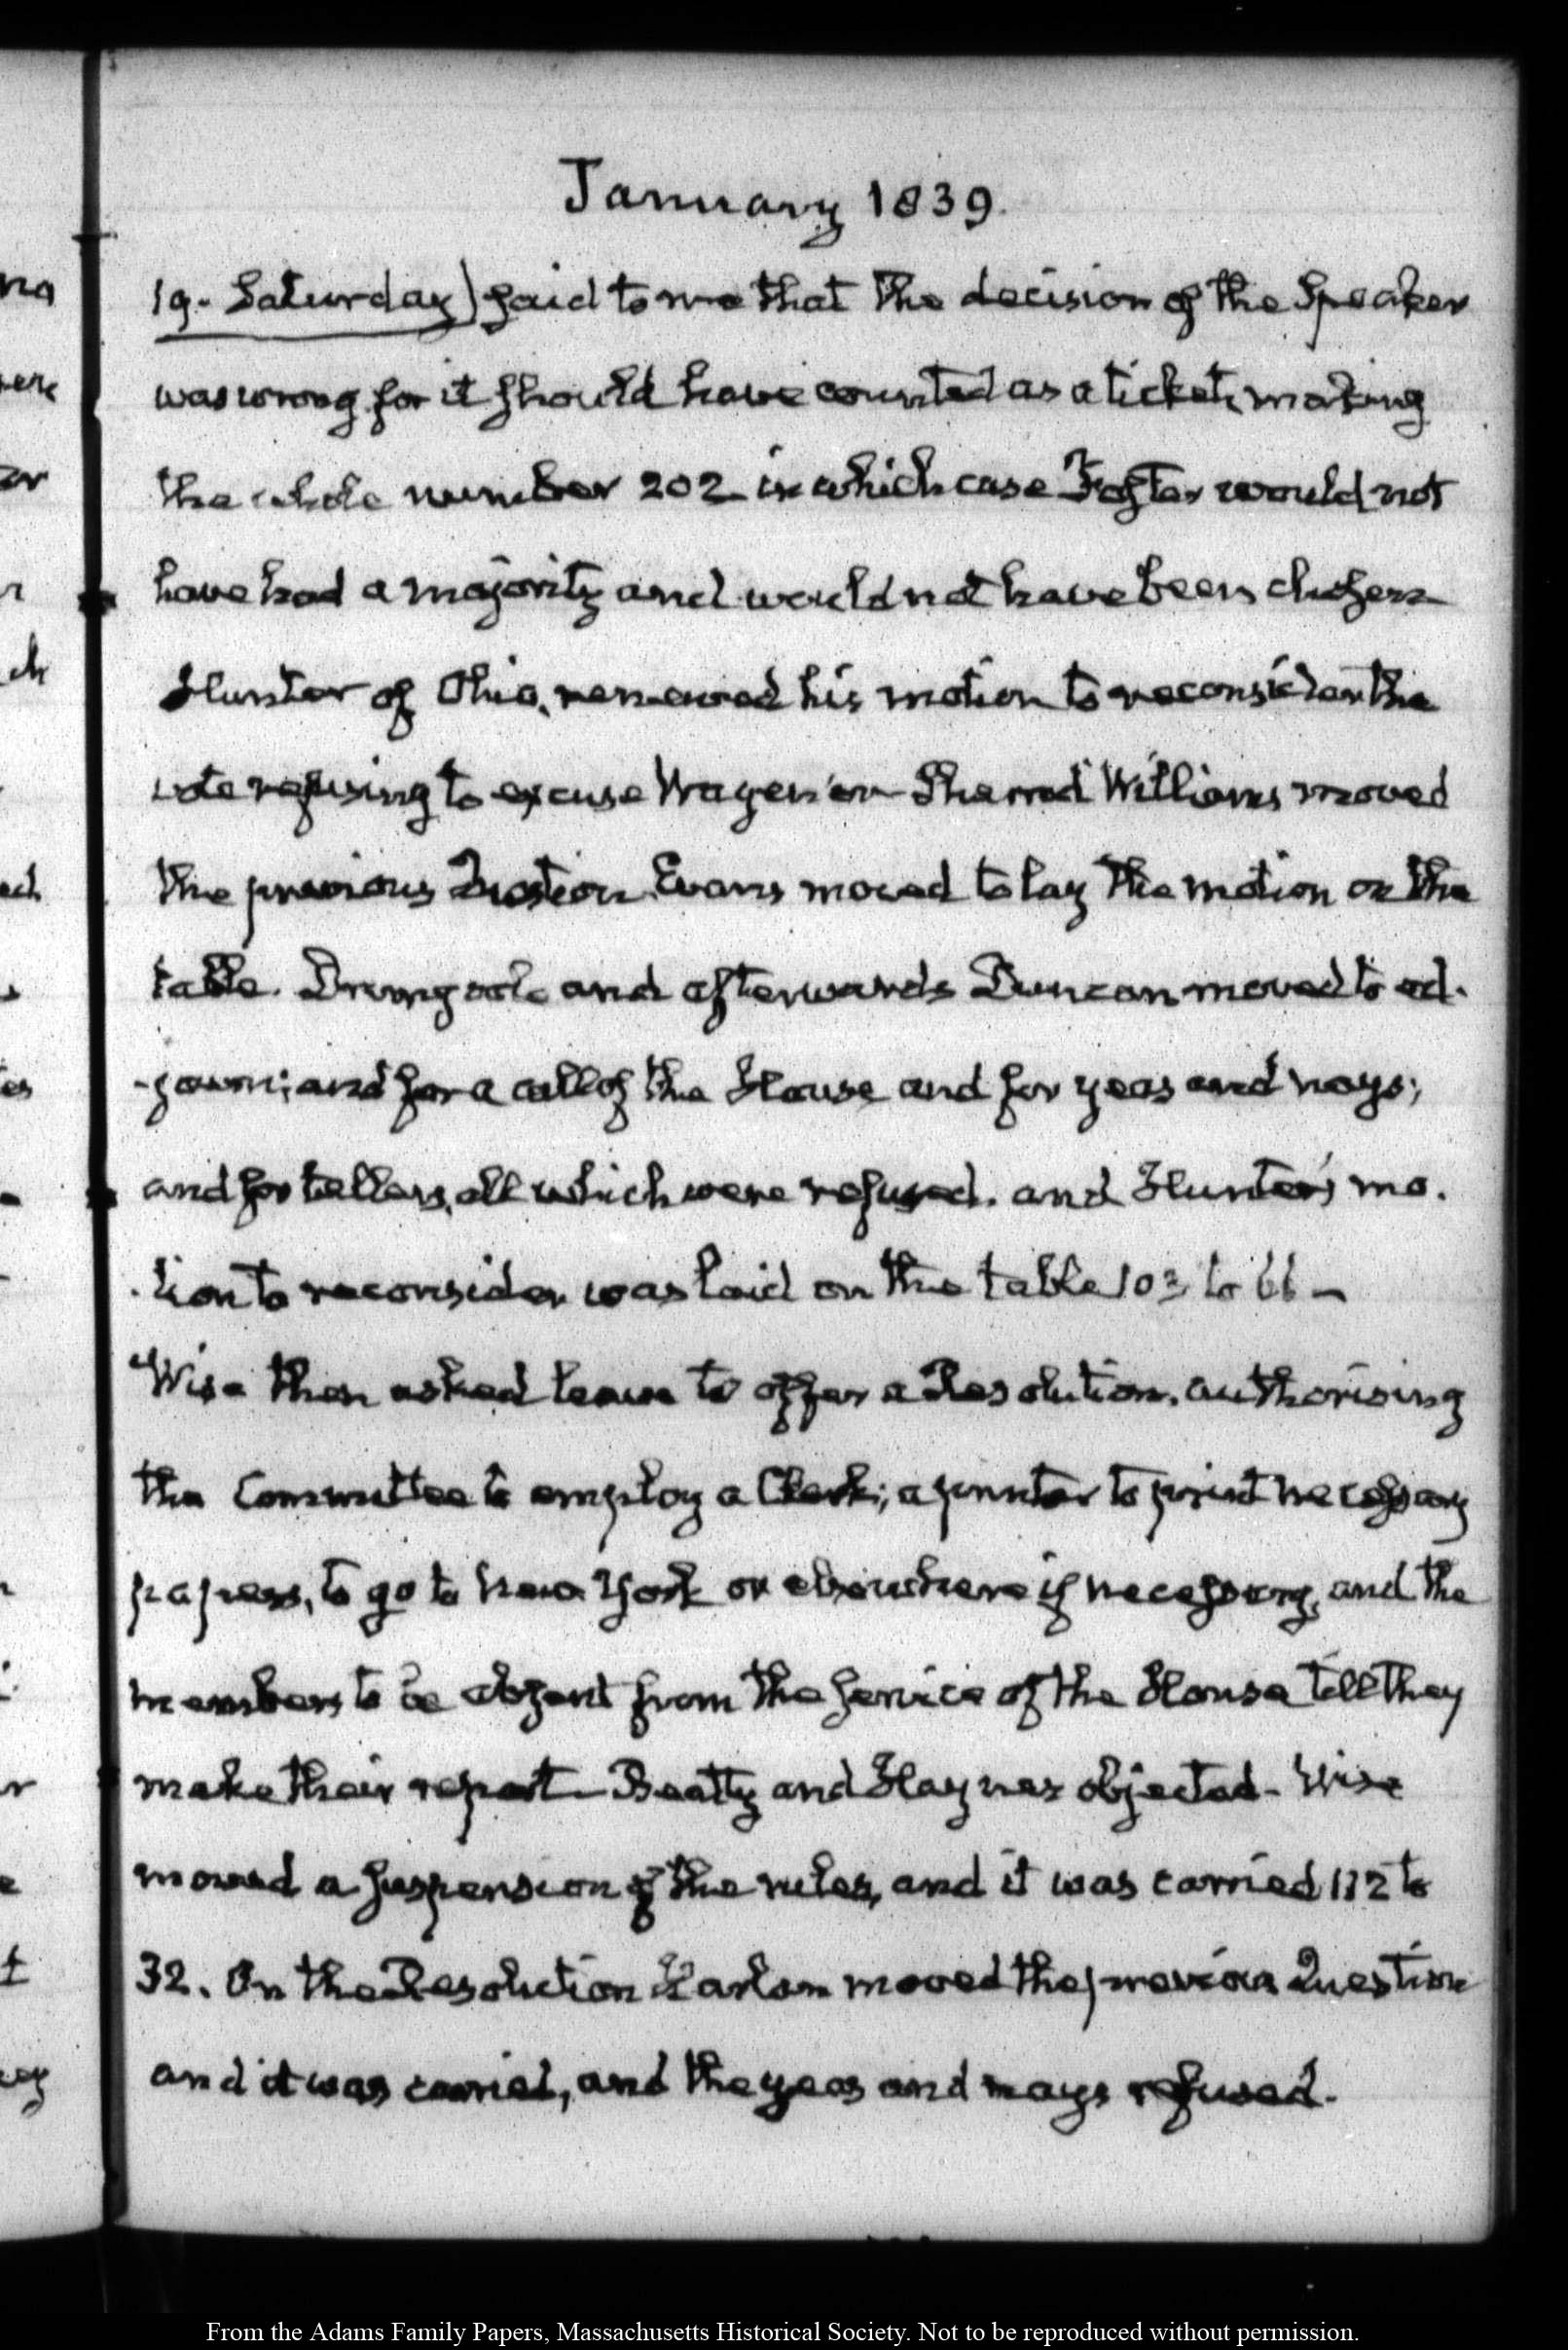 January 1839.
19. Saturday) said to me that the decision of the Speaker
was wrong for it should have counted as a ticket, making
the whole number 202 in which case Foster would not
have had a majority and would not have been chosen
Hunter of Ohio, renewed his motion to reconsider the
vote refusing to excuse Wagener Sherrod Williams moved
the previous Question. Evans moved to lay the motion on the
table. Dromgoole and afterwards Duncan moved to ad-
-journ; and for a call of the House and for yeas and nays;
and for tellers, all which were refused. and Hunter's mo-
-tion to reconsider was laid on the table 103 to 66 -
Wise then asked leave to offer a Resolution, authorising
the Committee to employ a Clerk; a printer to print necessary
papers, to go to New York or elsewhere if necessary, and the
members to be absent from the service of the House till they
make their report - Beatty and Haynes objected - Wise
moved a suspension of the rules, and it was carried 112 to
32. On the Resolution Harlan moved the previous Question
and it was carried, and the yeas and nays refused.
na
ere
er
r
ch
ech
s
es
r
e
t
ey
From the Adams Family Papers, Massachusetts Historical Society. Not to be reproduced without permission.